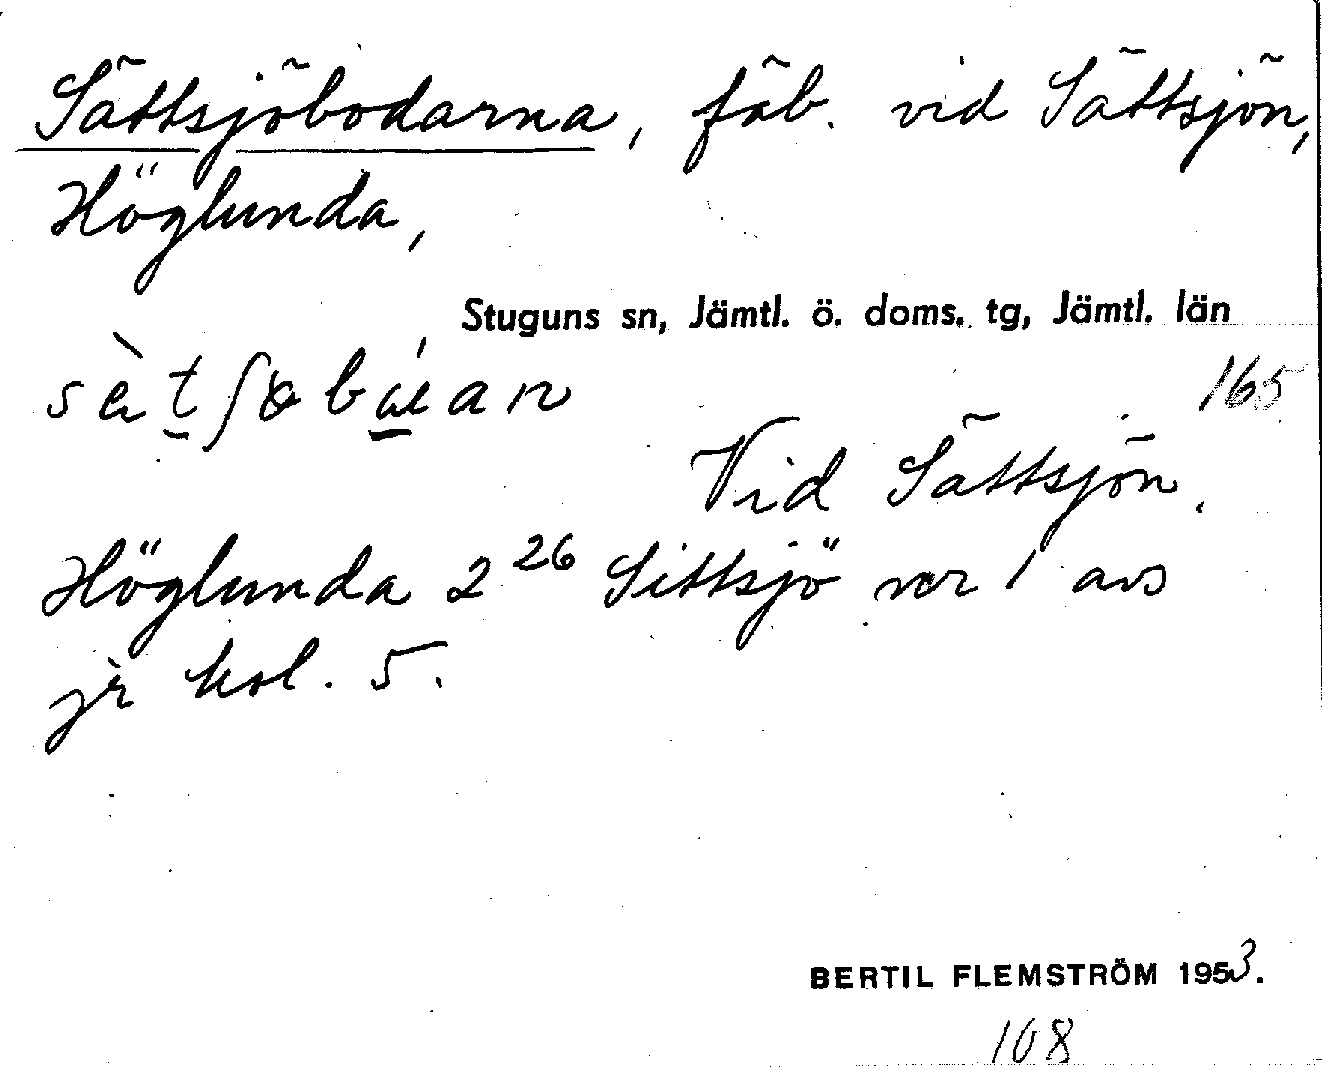 Sättsjöbodarna, fäb. vid Sättsjön,
Höglunda,
Stuguns sn, Jämtl. ö. doms. tg, Jämtl. län
165
Vid Sättsjön.
Höglunda 2 26 Sittsjö ver 1 avs
jr kol. 5.
BERTIL FLEMSTRÖM 1953.
108